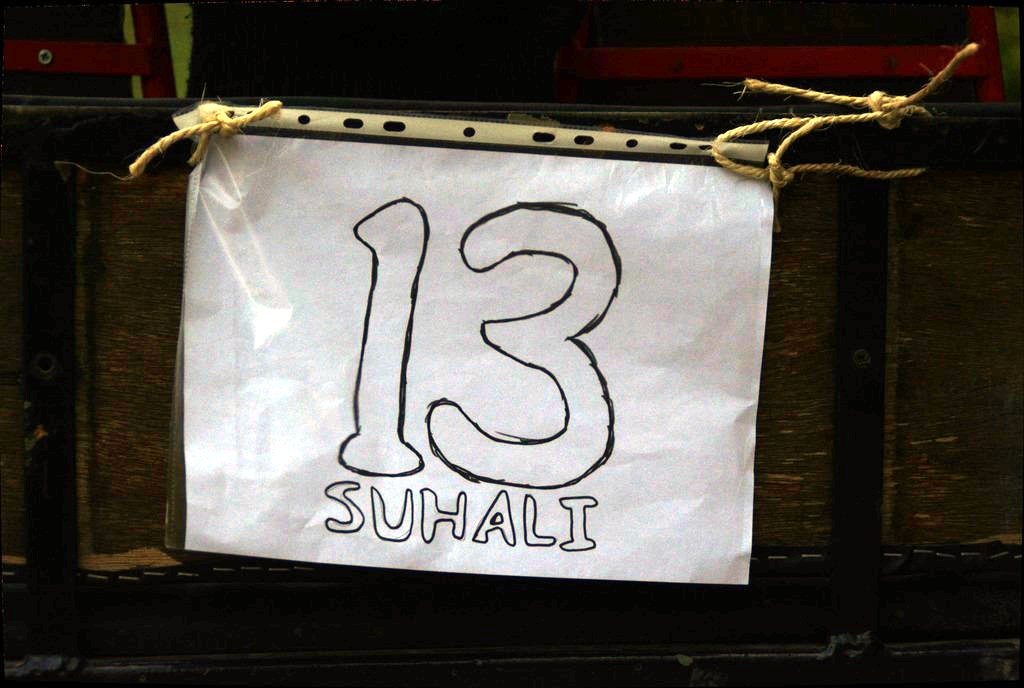 13
SUHALI